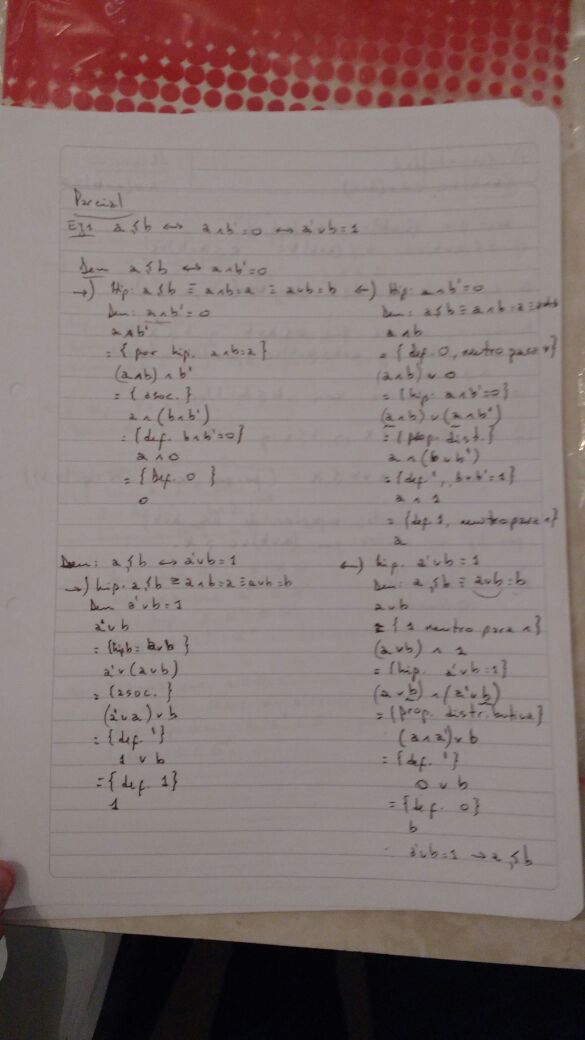 Parcial
Ej1 a ≤ b ↔ a∧b'=0 ↔ a'∨b=1
Dem a ≤ b ↔ a∧b'=0
→) Hip: a ≤ b ≡ a∧b=a ≡ a∨b=b
Dem: a∧b'=0
a∧b'
={por hip. a∧b=a}
(a∧b)∧b'
={asoc.}
a∧(b∧b')
={def. b∧b'=0}
a∧0
={Def. 0}
0
←) Hip: a∧b'=0
Dem: a ≤ b ≡ a∧b=a
a∧b
={def. 0, neutro para ∨}
(a∧b)∨0
={hip: a∧b'=0}
(a∧b)∨(a∧b')
={prop. dist.}
a∧(b∨b')
={def ', b∨b'=1}
a∧1
={def 1, neutro para ∧}
a
Dem: a ≤ b ↔ a'∨b=1
→) hip. a ≤ b ≡ a∧b=a ≡ a∨b=b
Dem a'∨b=1
a'∨b
={hip b=a∨b}
a'∨(a∨b)
={asoc.}
(a'∨a)∨b
={def. '}
1∨b
={def. 1}
1
←) hip. a'∨b=1
Dem: a ≤ b ≡ a∨b=b
a∨b
={1 neutro para ∧}
(a∨b)∧1
={hip. a'∨b=1}
(a∨b)∧(a'∨b)
={prop. distributiva}
(a∧a')∨b
={def. '}
0∨b
={def. 0}
b
a'∨b=1 → a ≤ b